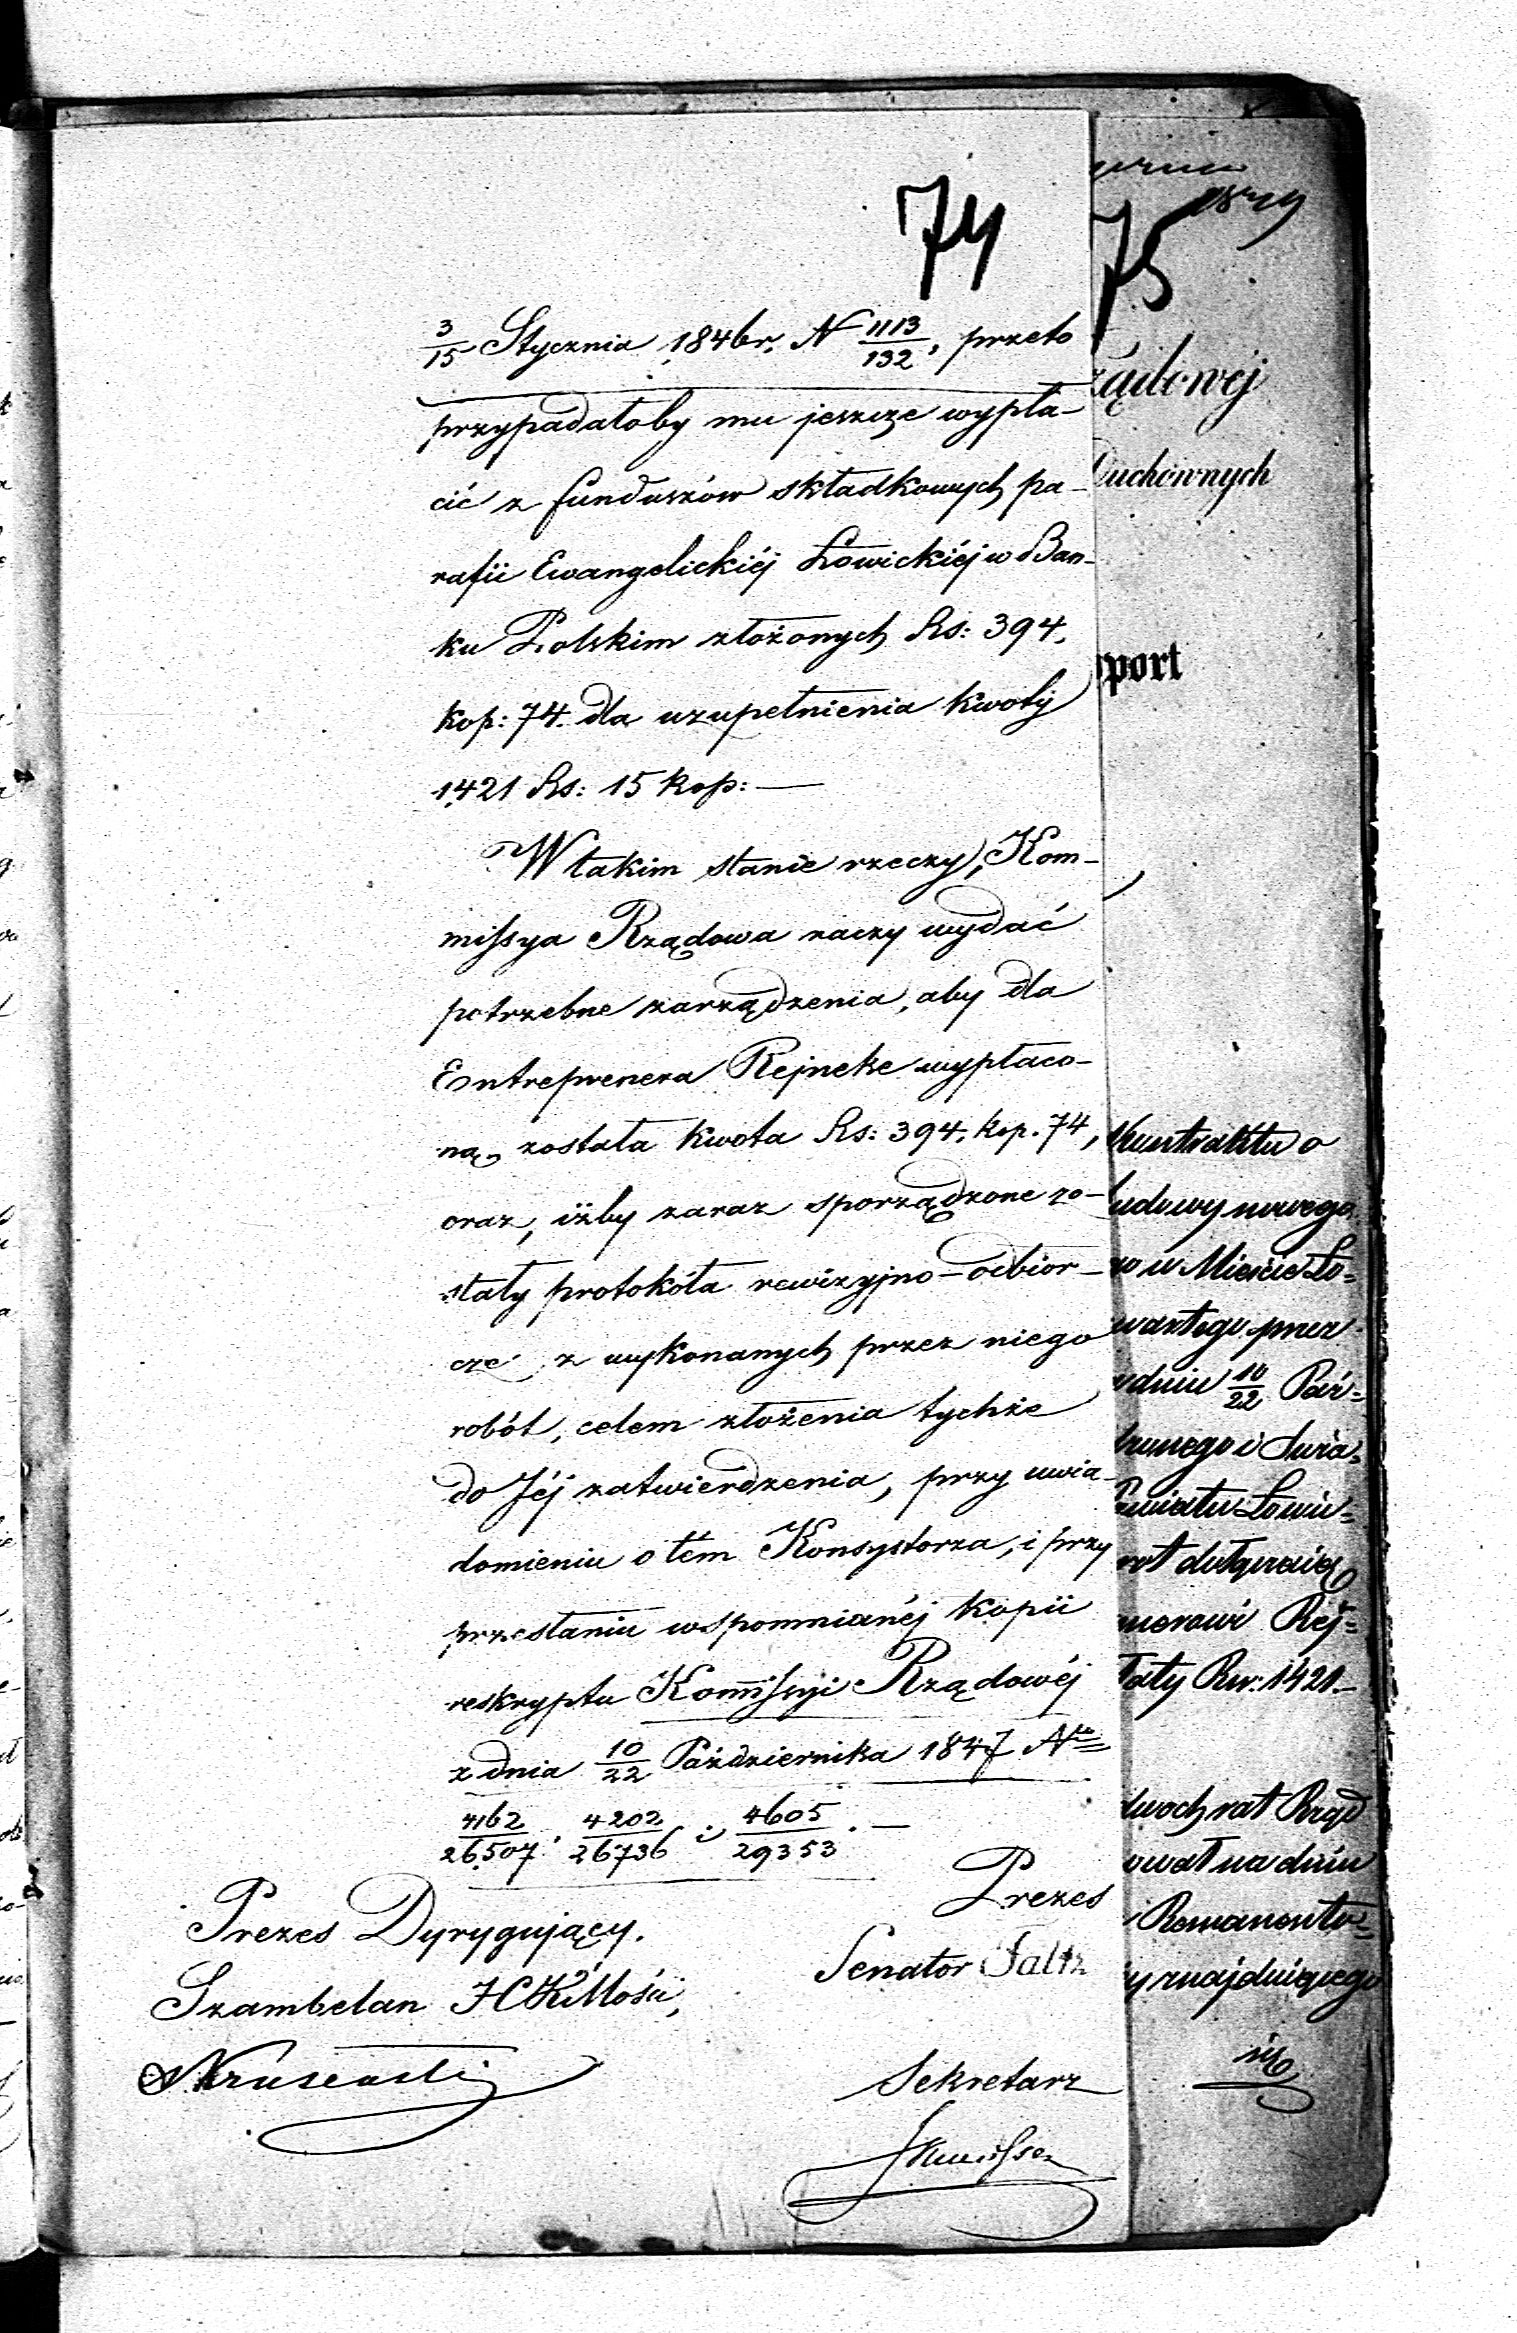 74
3/15 Stycznia 1846 r. N 1113/132, przeto
przypadałoby mu jeszcze wypła-
cić z funduszów składkowych pa-
rafii Ewangelickiéj Łowickiéj w Ban-
ku Polskim złożonych Rs: 394.
kop: 74. dla uzupełnienia kwoty
1421 Rs: 15 kop: —
W takim stanie rzeczy, Kom-
missya Rządowa raczy wydać
potrzebne zarządzenia, aby dla
Entreprenera Rejneke wypłaco-
ną została kwota Rs: 394. kop. 74,
oraz, iżby zaraz sporządzone zo-
stały protokóła rewizyjno-odbior-
cze z wykonanych przez niego
robót, celem złożenia tychże
do Jéj zatwierdzenia, przy uwia-
domieniu o tém Konsystorza, i przy
przesłaniu wspomnianéj kopii
reskryptu Kommissyi Rządowéj
z dnia 10/22 Października 1847 No
4162/26507. 4202/26736 i 4605/29353. —
Prezes
Senator Faltz
Prezes Dyrygujący.
Szambelan JCKMości,
Sekretarz
75
ządowej
Duchownych
port
Kontraktu o
udowy nowego
w Mieście Ło=
wartego przez
w dniu 10/22 Paź=
Powiatu Łowic=
Rej=
łaty Rsr. 1421.—
dwoch rat Rząd
ował na dniu
i Remanento=
znajdującego